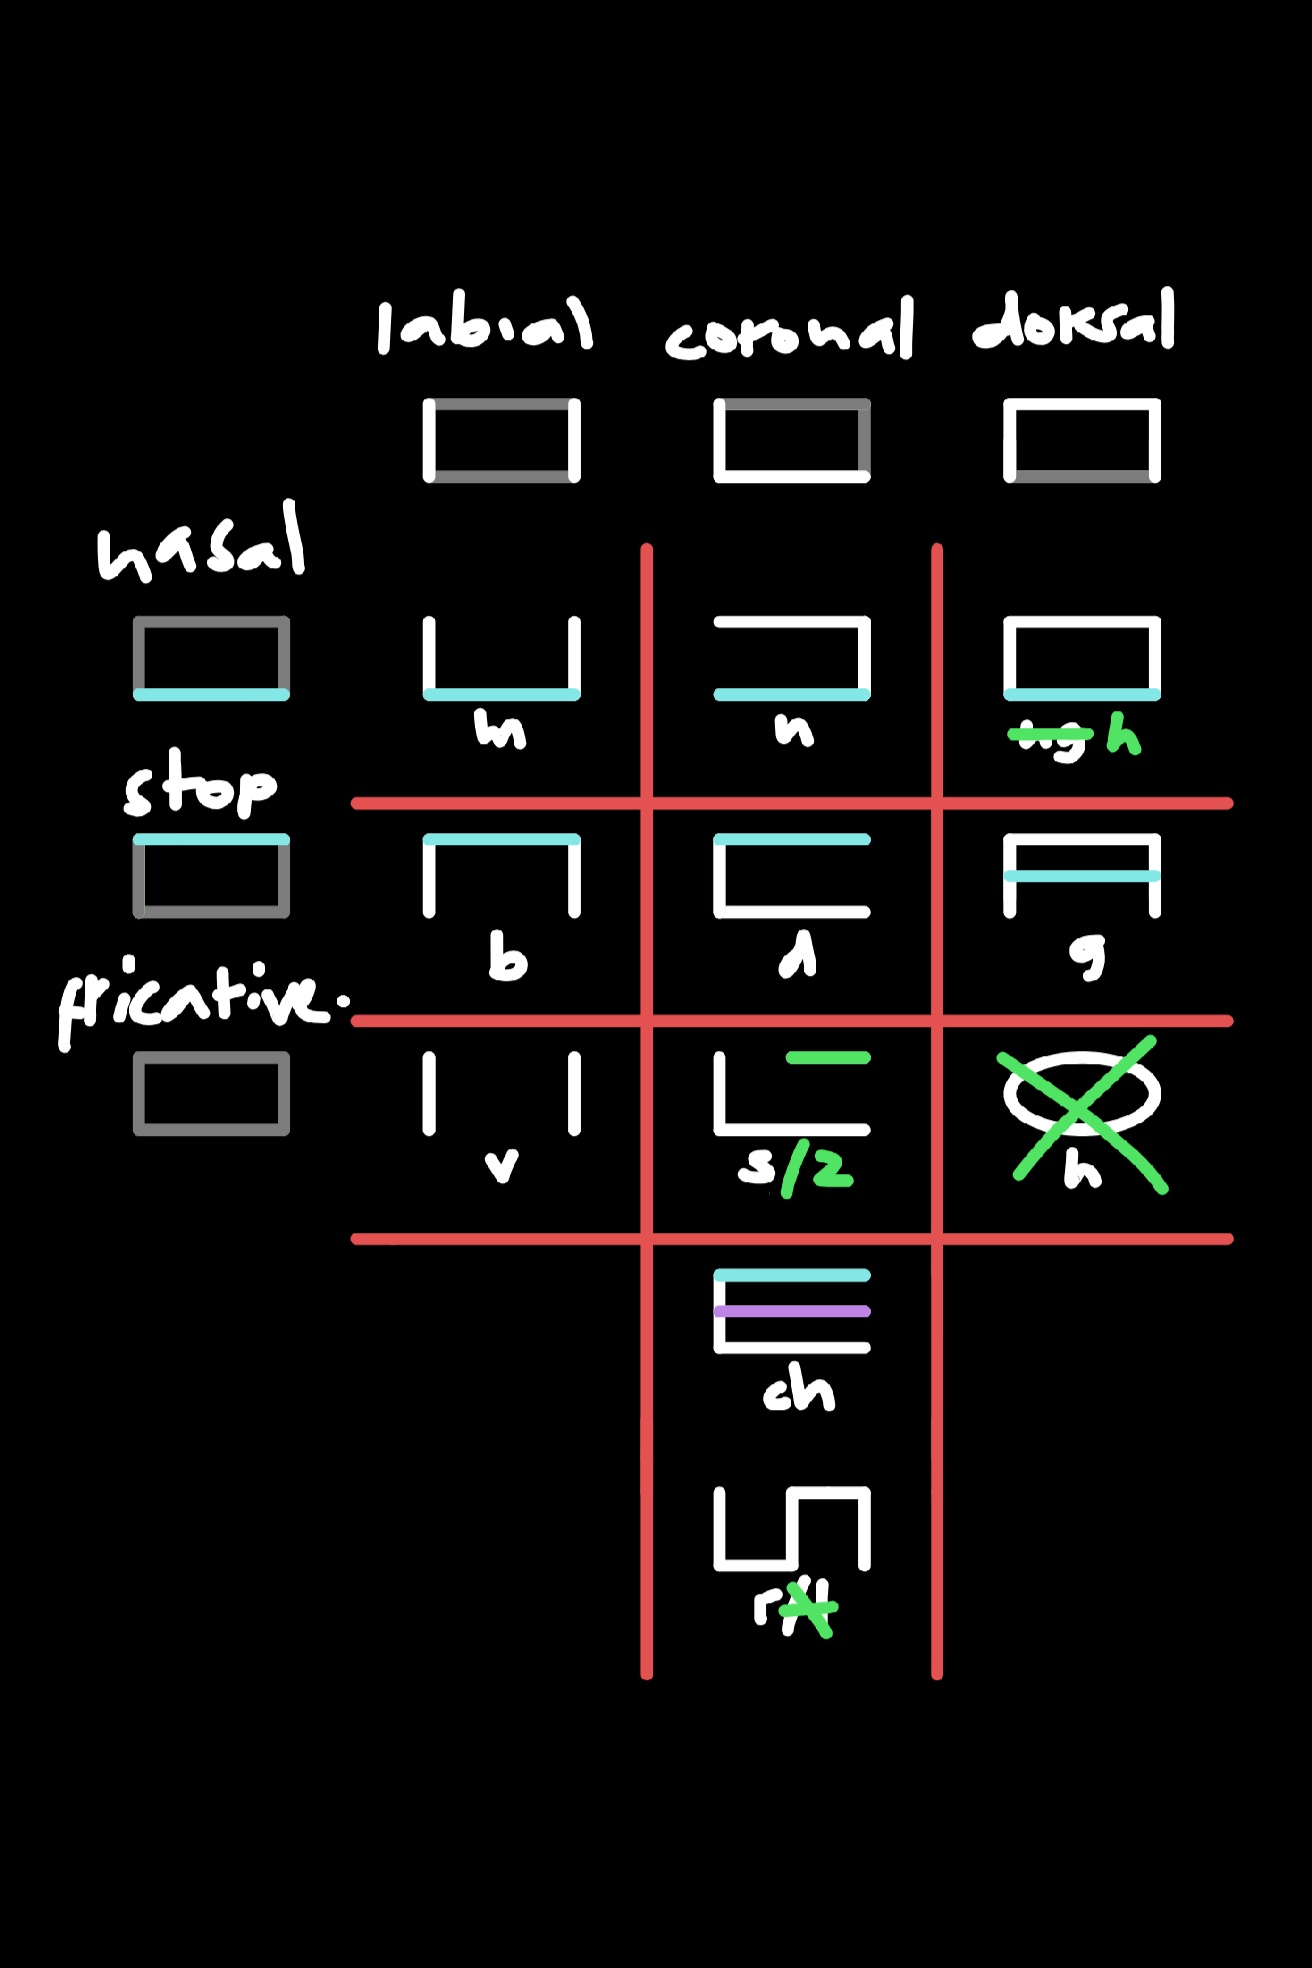 labial coronal doksal
nasal
m n ng h
stop
b d g
fricative.
v s/z h
ch
r/l